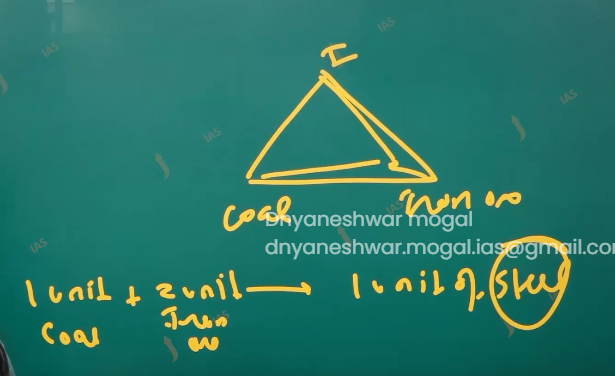 I
Coal Iron ore
Dnyaneshwar mogal
dnyaneshwar.mogal.ias@gmail.com
1 unit + 2 unit → 1 unit of Steel
Coal Iron
ore
IAS
IAS
IAS
IAS
IAS
IAS